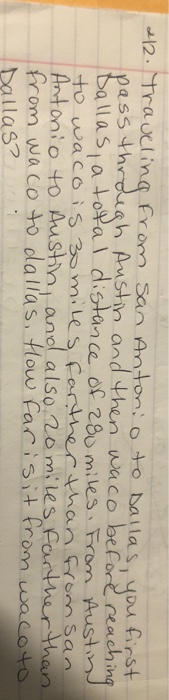 212. Traveling From San Antonio to Dallas, you first
pass through Austin and then waco before reaching
Dallas, a total distance of 280 miles. From Austin
to waco is 30 miles farther than from San
Antonio to Austin, and also 20 miles farther than
from waco to dallas. How far is it from waco to
Dallas?